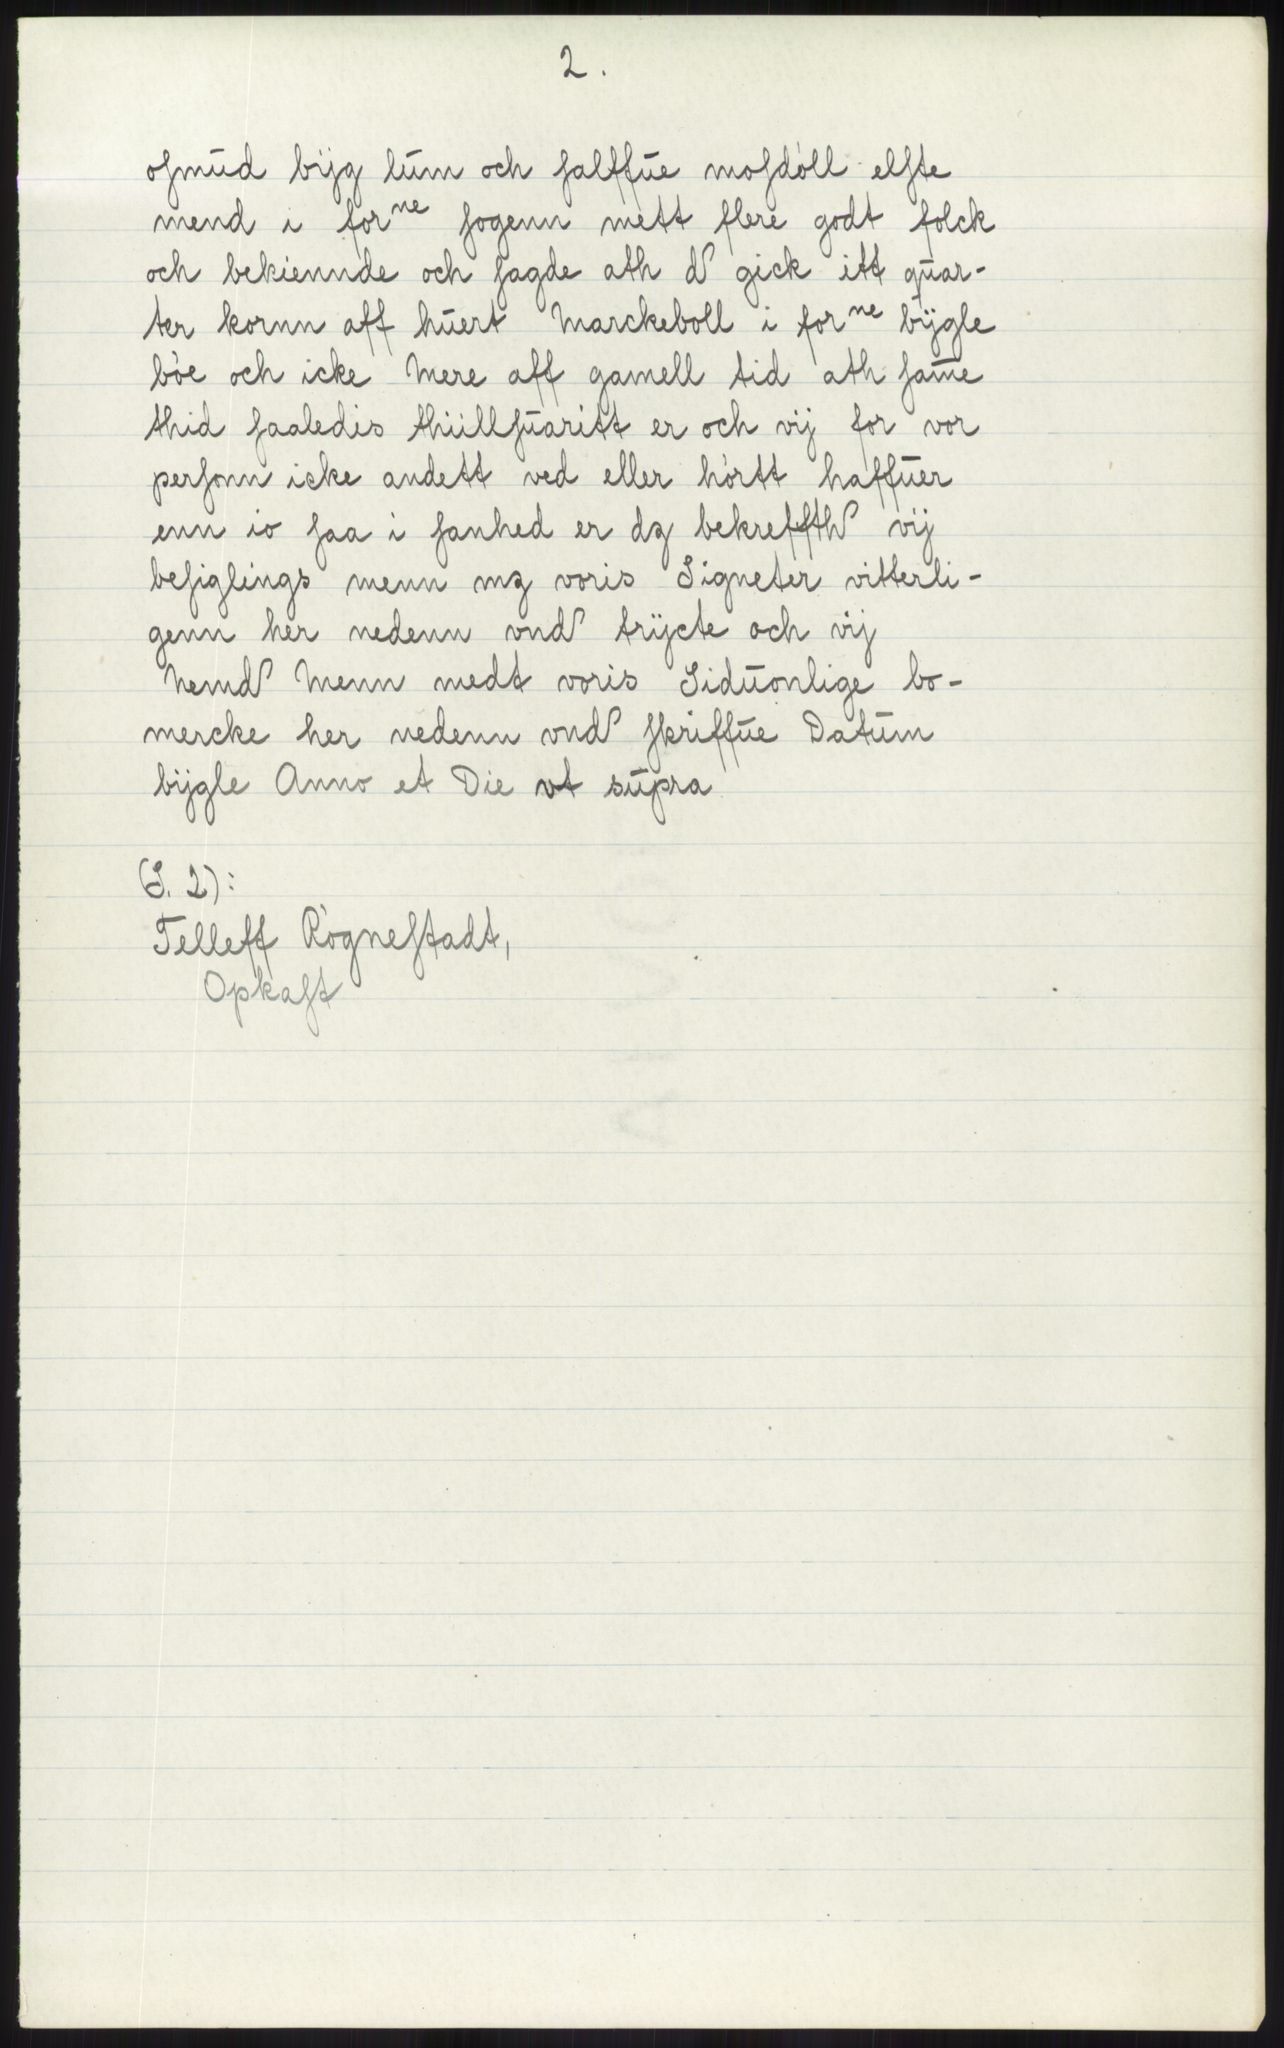 2.
osmud bijg lum och salffue mosdøll elste
mend i forne sogenn mett flere godt folck
och bekiennde och sagde ath d gick itt quar-
ter kornn aff huert Marckeboll i forne bijgle
bøe och icke Mere aff gamell tid ath same
thid saaledis thiillsuaritt er och vij for vor
personn icke andett ved eller hørtt haffuer
enn io saa i sanhed er dz bekreffth vij
besiglings menn mz voris Signeter vitterli-
genn her nedenn vnd trijcte och vij
Nemd Menn medt voris Siduonlige bo-
mercke her nedenn vnd skriffue Datum
bijgle Anno et Die vt supra
(S. 2):
Telleff Røgnestadt,
Opkast